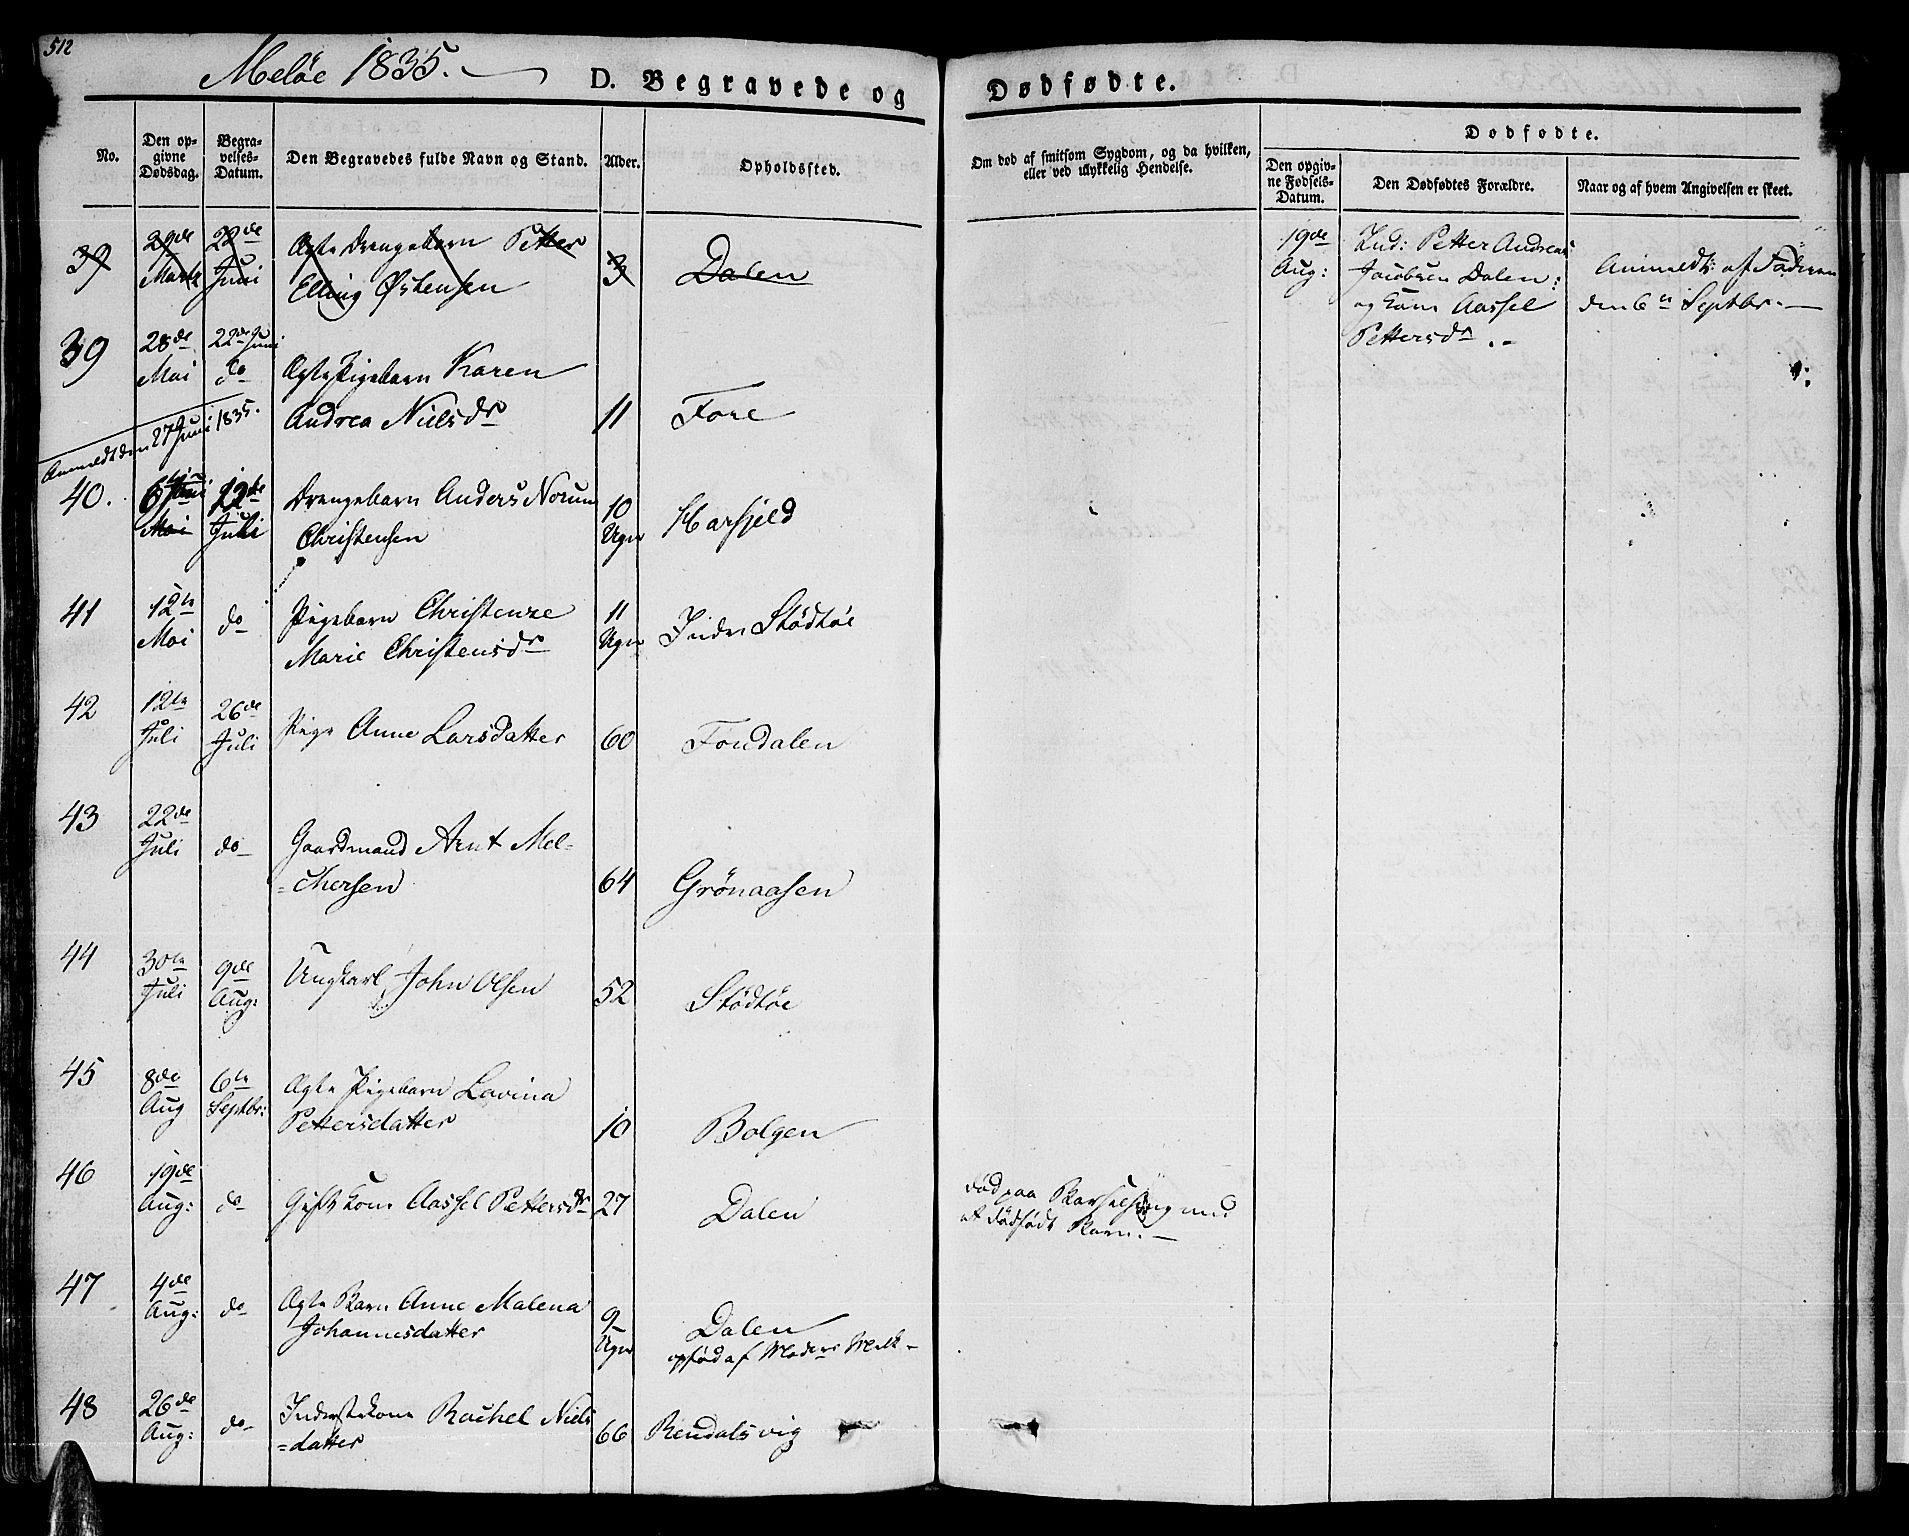 512
Meløe 1835.
D. Begravede og
Dødfødte.
No.
Den op-
givne
Dødsdag.
Begra-
velses-
Datum.
Den Begravedes fulde Navn og Stand.
Alder.
Opholdssted.
Om død af smitsom Sygdom, og da hvilken,
eller ved ulykkelig Hendelse.
Dødfødte.
Den opgiv-
ne Fødsels-
Datum.
Den Dødfødtes Forældre.
Naar og af hvem Angivelsen er skeet.
39
29de
Marts
22de
Juni
Ægte Drengebarn Petter
Elling Østensen
3
Dalen
19de
Aug:
Ind: Petter Andreas
Jacobsen Dalen:
og Kone Aassel
Pettersdr .-
Anmeldt af Faderen
den 6te Septbr.-
39
28de
Mai
22de Juni
do
Ægte Pigebarn Karen
Andrea Nielsdr
11
Fore
Anmeldt den 27 Juni 1835.
40.
6te Juni
Mai
12de
Juli
Drengebarn Anders Norum
Christensen
10
Uger
Harfjeld
41
12te
Mai
do
Pigebarn Christenze
Marie Christensdr
11
Uger
Indre Stødtøe
42
12te
Juli
26de
Juli
Pige Anne Larsdatter
60
Fondalen
43
22de
Juli
do
Gaardmand Arnt Mel-
-chersen
64
Grønaasen
44
30te
Juli
9de
Aug:
Ungkarl John Olsen
52
Stødtøe
45
8de
Aug
6te
Septbr:
Ægte Pigebarn Lovina
Pettersdatter
10
Bolgen
46
19de
Aug:
do
Gift Kone Aassel Pettersdr
27
Dalen
Død paa Barselseng med
et dødfødt Barn.-
47
4de
Aug:
do
Ægte Barn Anne Malena
Johannesdatter
9
Uger
Dalen
opfød af Moders Melk-
48
26de
Aug:
do
Inderstekone Rachel Niels
-datter
66
Rendalsvig